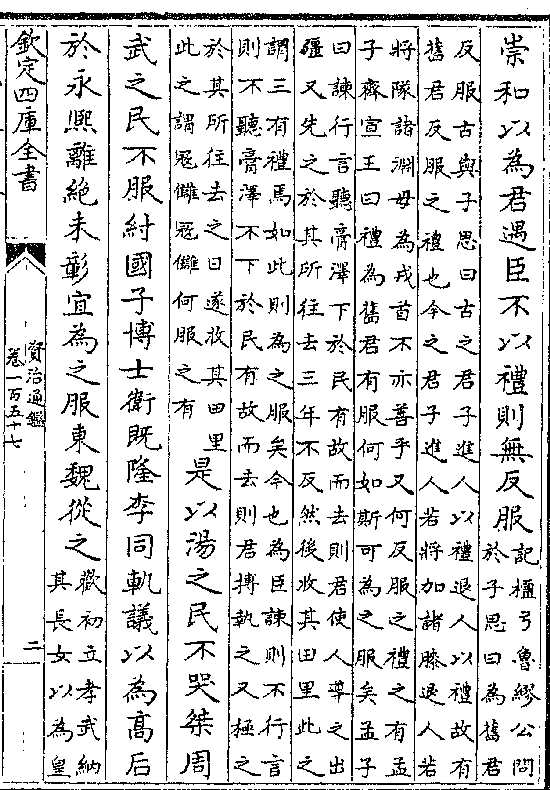 崇和以為君遇臣不以禮則無反服
記檀弓魯繆公問
於子思曰為舊君
反服古與子思曰古之君子進人以禮退人以禮故有
舊君反服之禮也今之君子進人若將加諸膝退人若
將隊諸淵毋為戎首不亦善乎又何反服之禮之有孟
子齊宣王曰禮為舊君有服何如斯可為之服矣孟子
曰諫行言聽膏澤下於民有故而去則君使人導之出
疆又先之於其所往去三年不反然後收其田里此之
謂三有禮焉如此則為之服矣今也為臣諫則不行言
則不聽膏澤不下於民有故而去則君搏執之又極之
於其所往去之日遂收其田里
此之謂寇讎寇讎何服之有
是以湯之民不哭桀周
武之民不服紂國子博士衛既隆李同軌議以為高后
於永熙離絶未彰宜為之服東魏從之
歡初立孝武納
其長女以為皇
欽定四庫全書
資治通鑑
卷一百五十七
二